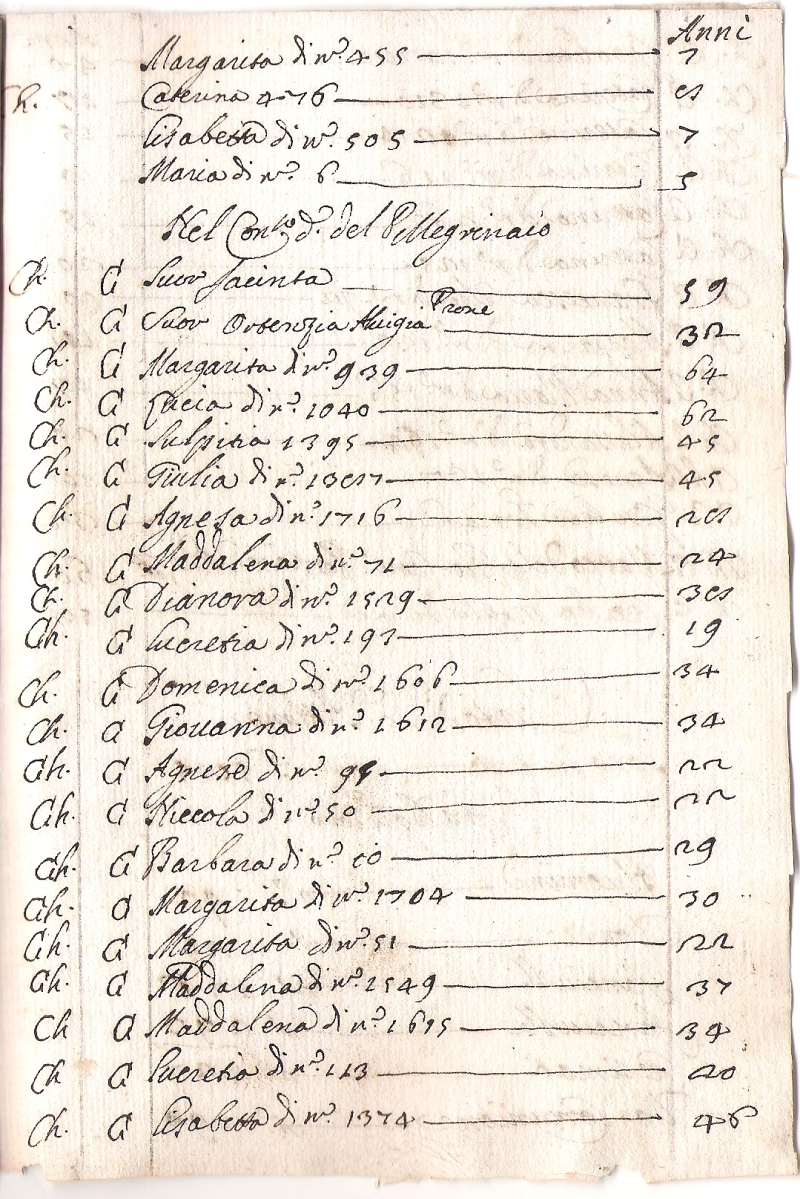 Anni
Margarita di nº. 455 7
Ch. Caterina 476 8
Lisabetta di nº. 505 7
Maria di nº. 6 5
Nel Con.to d.o del Pellegrinaio
Ch. C Suor Jacinta 59
Ch. C Suor Ortenzia 32
Ch. C Margarita di nº. 939 64
Ch. C Lucia di nº. 1040 62
Ch. C Sulpitia 1395 45
Ch. C Giulia di nº. 1387 45
Ch. C Agnesa di nº. 1716 28
Ch. C Maddalena di nº. 71 24
Ch. C Dianora di nº. 1529 38
Ch. C Lucretia di nº. 197 19
Ch. C Domenica di nº. 1606 34
Ch. C Giovanna di nº. 1612 34
Ch. C Agnese di nº. 22
Ch. C Niccola di nº. 50 22
Ch. C Barbara di nº. 29
Ch. C Margarita di nº. 1704 30
Ch. C Margarita di nº. 51 22
Ch. C Maddalena di nº. 1549 37
Ch C Maddalena di nº. 1615 34
Ch C Lucretia di nº. 113 20
Ch. C Lisabetta di nº. 1374 46